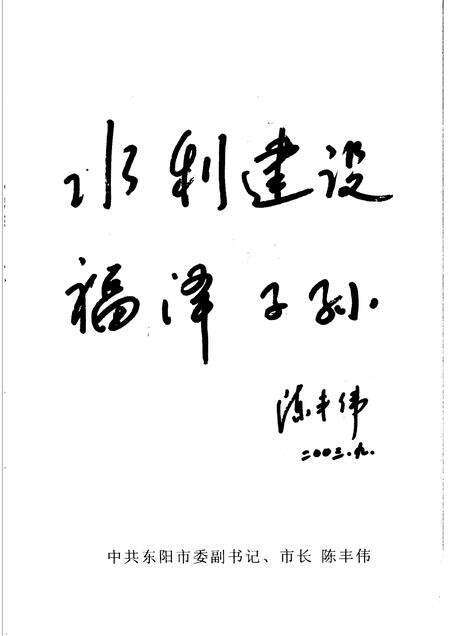 水利建设
福泽子孙.
陈丰伟
二00三.九.
中共东阳市委副书记、市长 陈丰伟